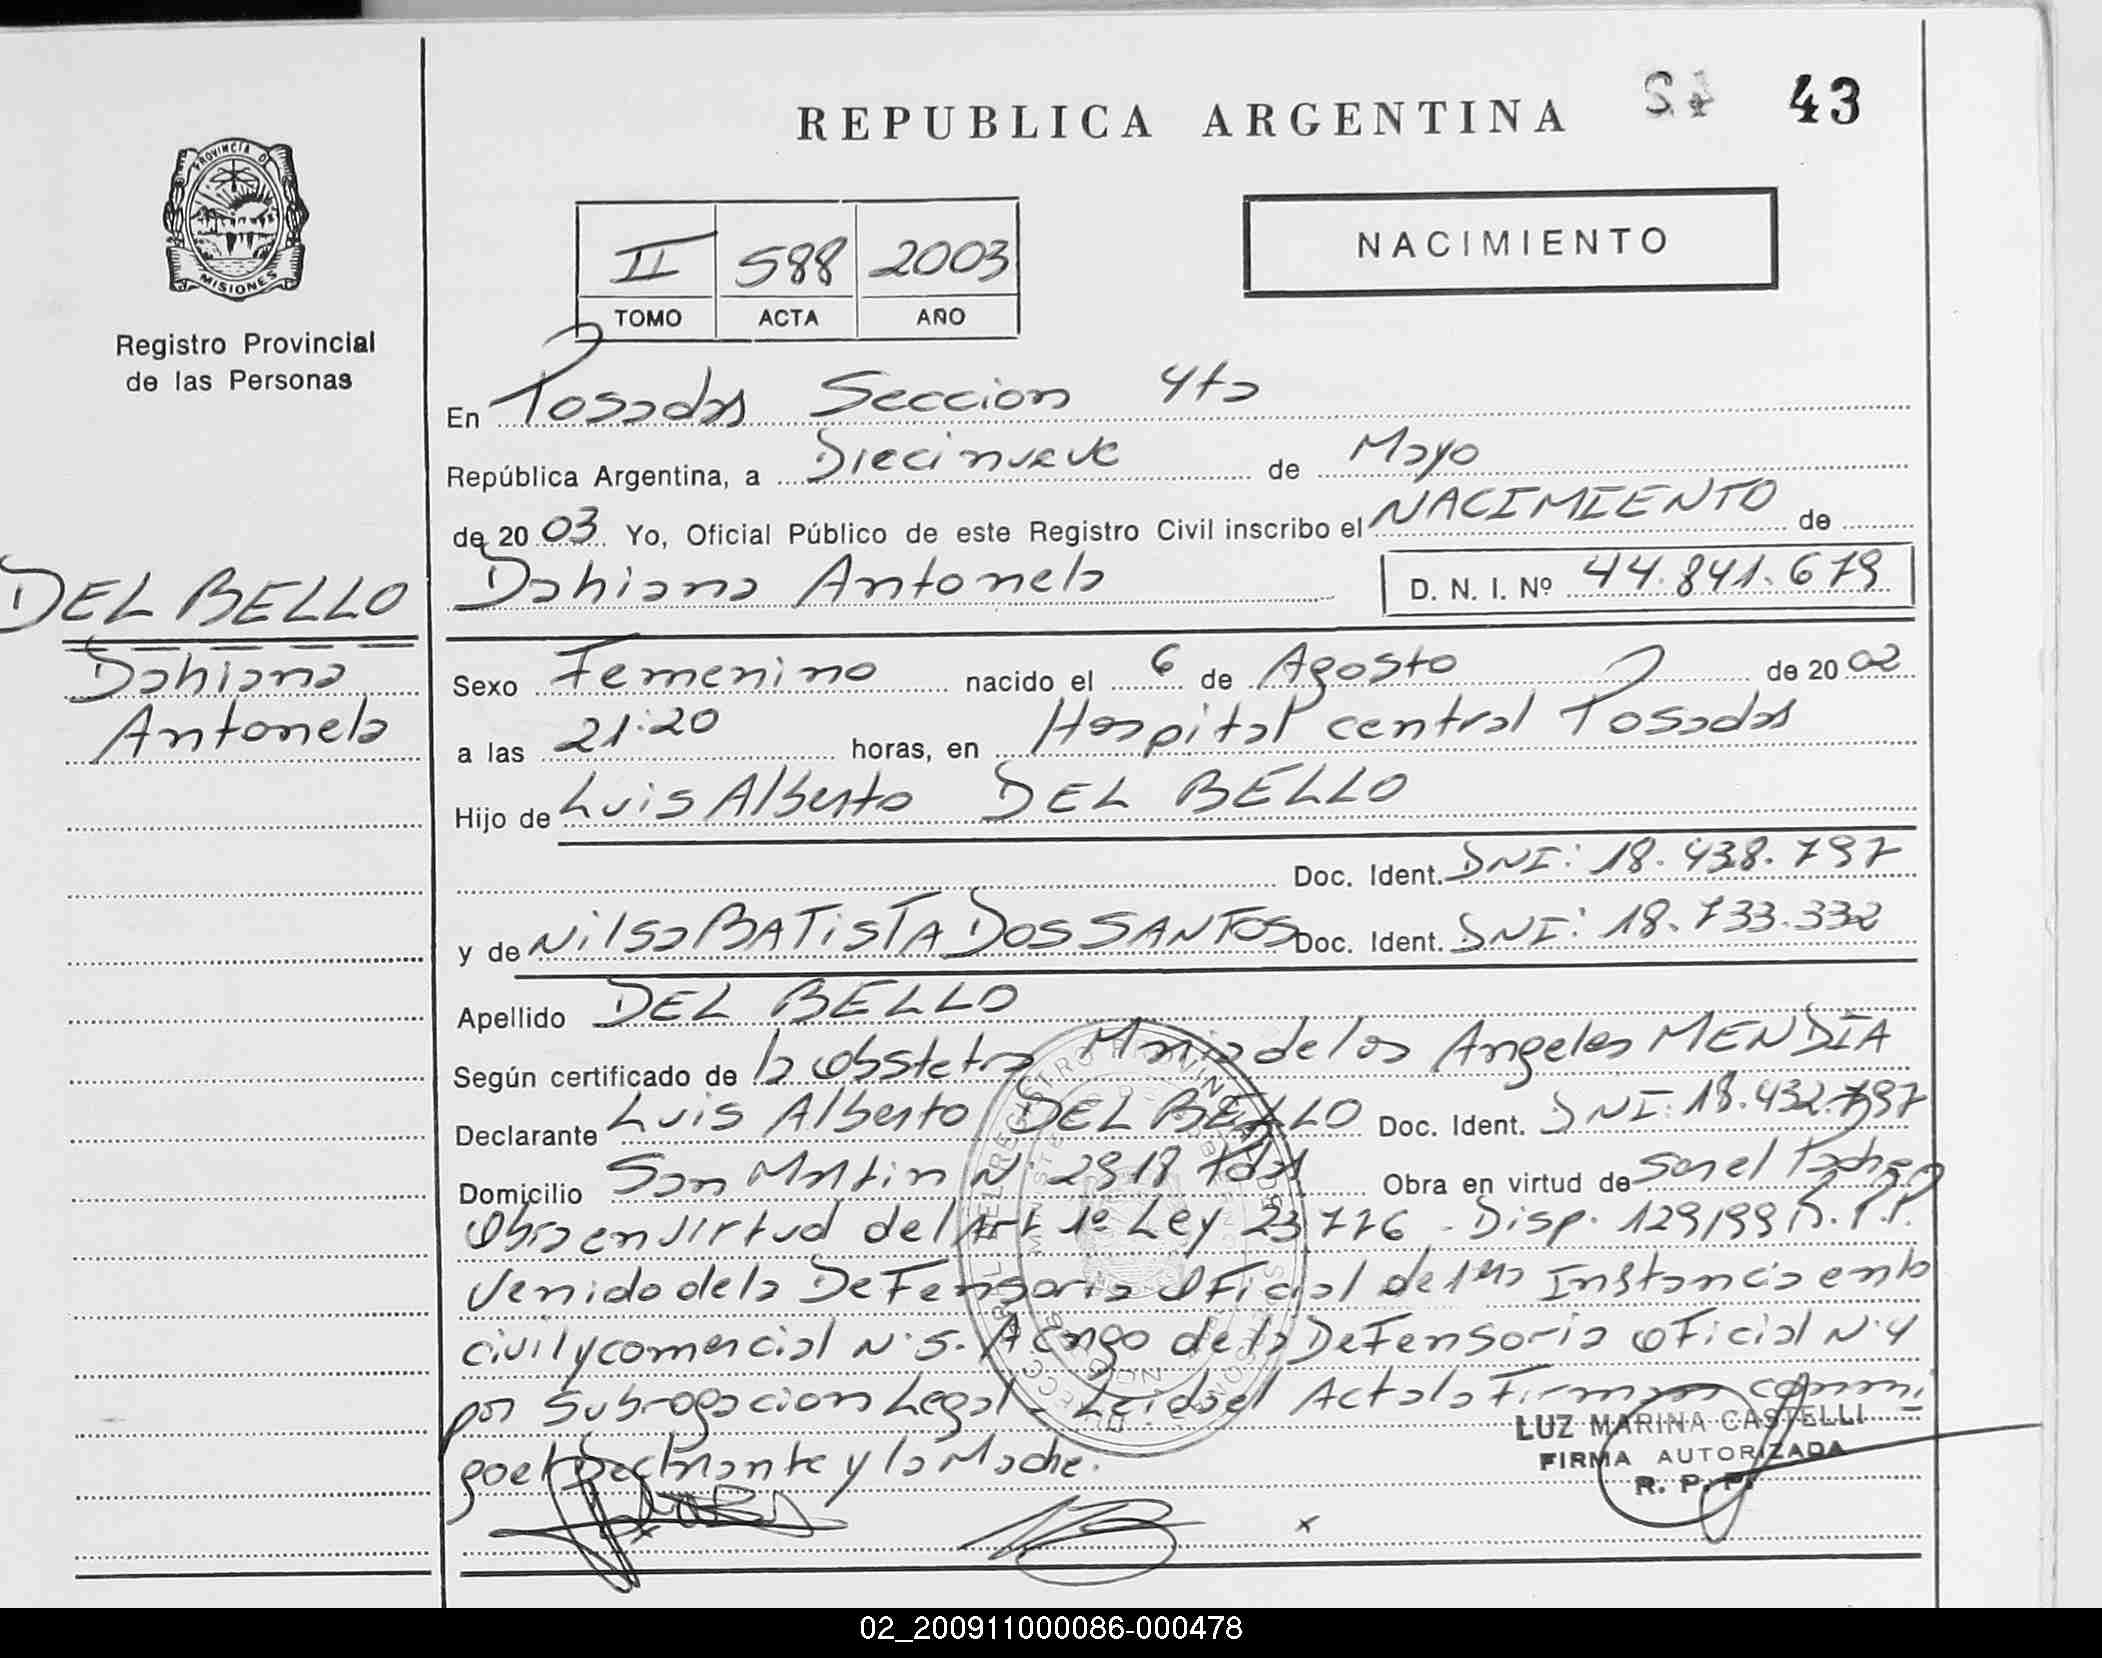 REPUBLICA ARGENTINA 43
PROVINCIA D
MISIONES
Registro Provincial
de las Personas
NACIMIENTO
II 588 2003
TOMO ACTA AÑO
En Posadas Seccion 4ta
República Argentina, a Diecinueve de Mayo
de 2003 Yo, Oficial Público de este Registro Civil inscribo el NACIMIENTO de
Dahiana Antonela D. N. I. Nº 44.841.679
DEL BELLO
Dahiana
Antonela
Sexo Femenino nacido el 6 de Agosto de 2002
a las 21:20 horas, en Hospital central Posadas
Hijo de Luis Alberto DEL BELLO
Doc. Ident. DNI: 18.438.797
y de Nilsa BATISTA DOS SANTOS Doc. Ident. DNI: 18.733.332
Apellido DEL BELLO
Según certificado de la Obstetra Maria de los Angeles MENDIA
Declarante Luis Alberto DEL BELLO Doc. Ident. DNI: 18.432.797
Domicilio San Martin Nº 2918 Pdas Obra en virtud de ser el Padre
Obra en virtud del Art 1º Ley 23776 - Disp. 129/99 R.P.P.
Venido de la Defensoria Oficial de 1era Instancia en lo
civil y comercial Nº 5. A Cargo de la Defensoria Oficial Nº 4
por Subrogacion Legal - Leida el Acta la Firman conmi
go el Declarante y la Madre.
LUZ MARINA CASTELLI
FIRMA AUTORIZADA
R. P. P.
02_200911000086-000478